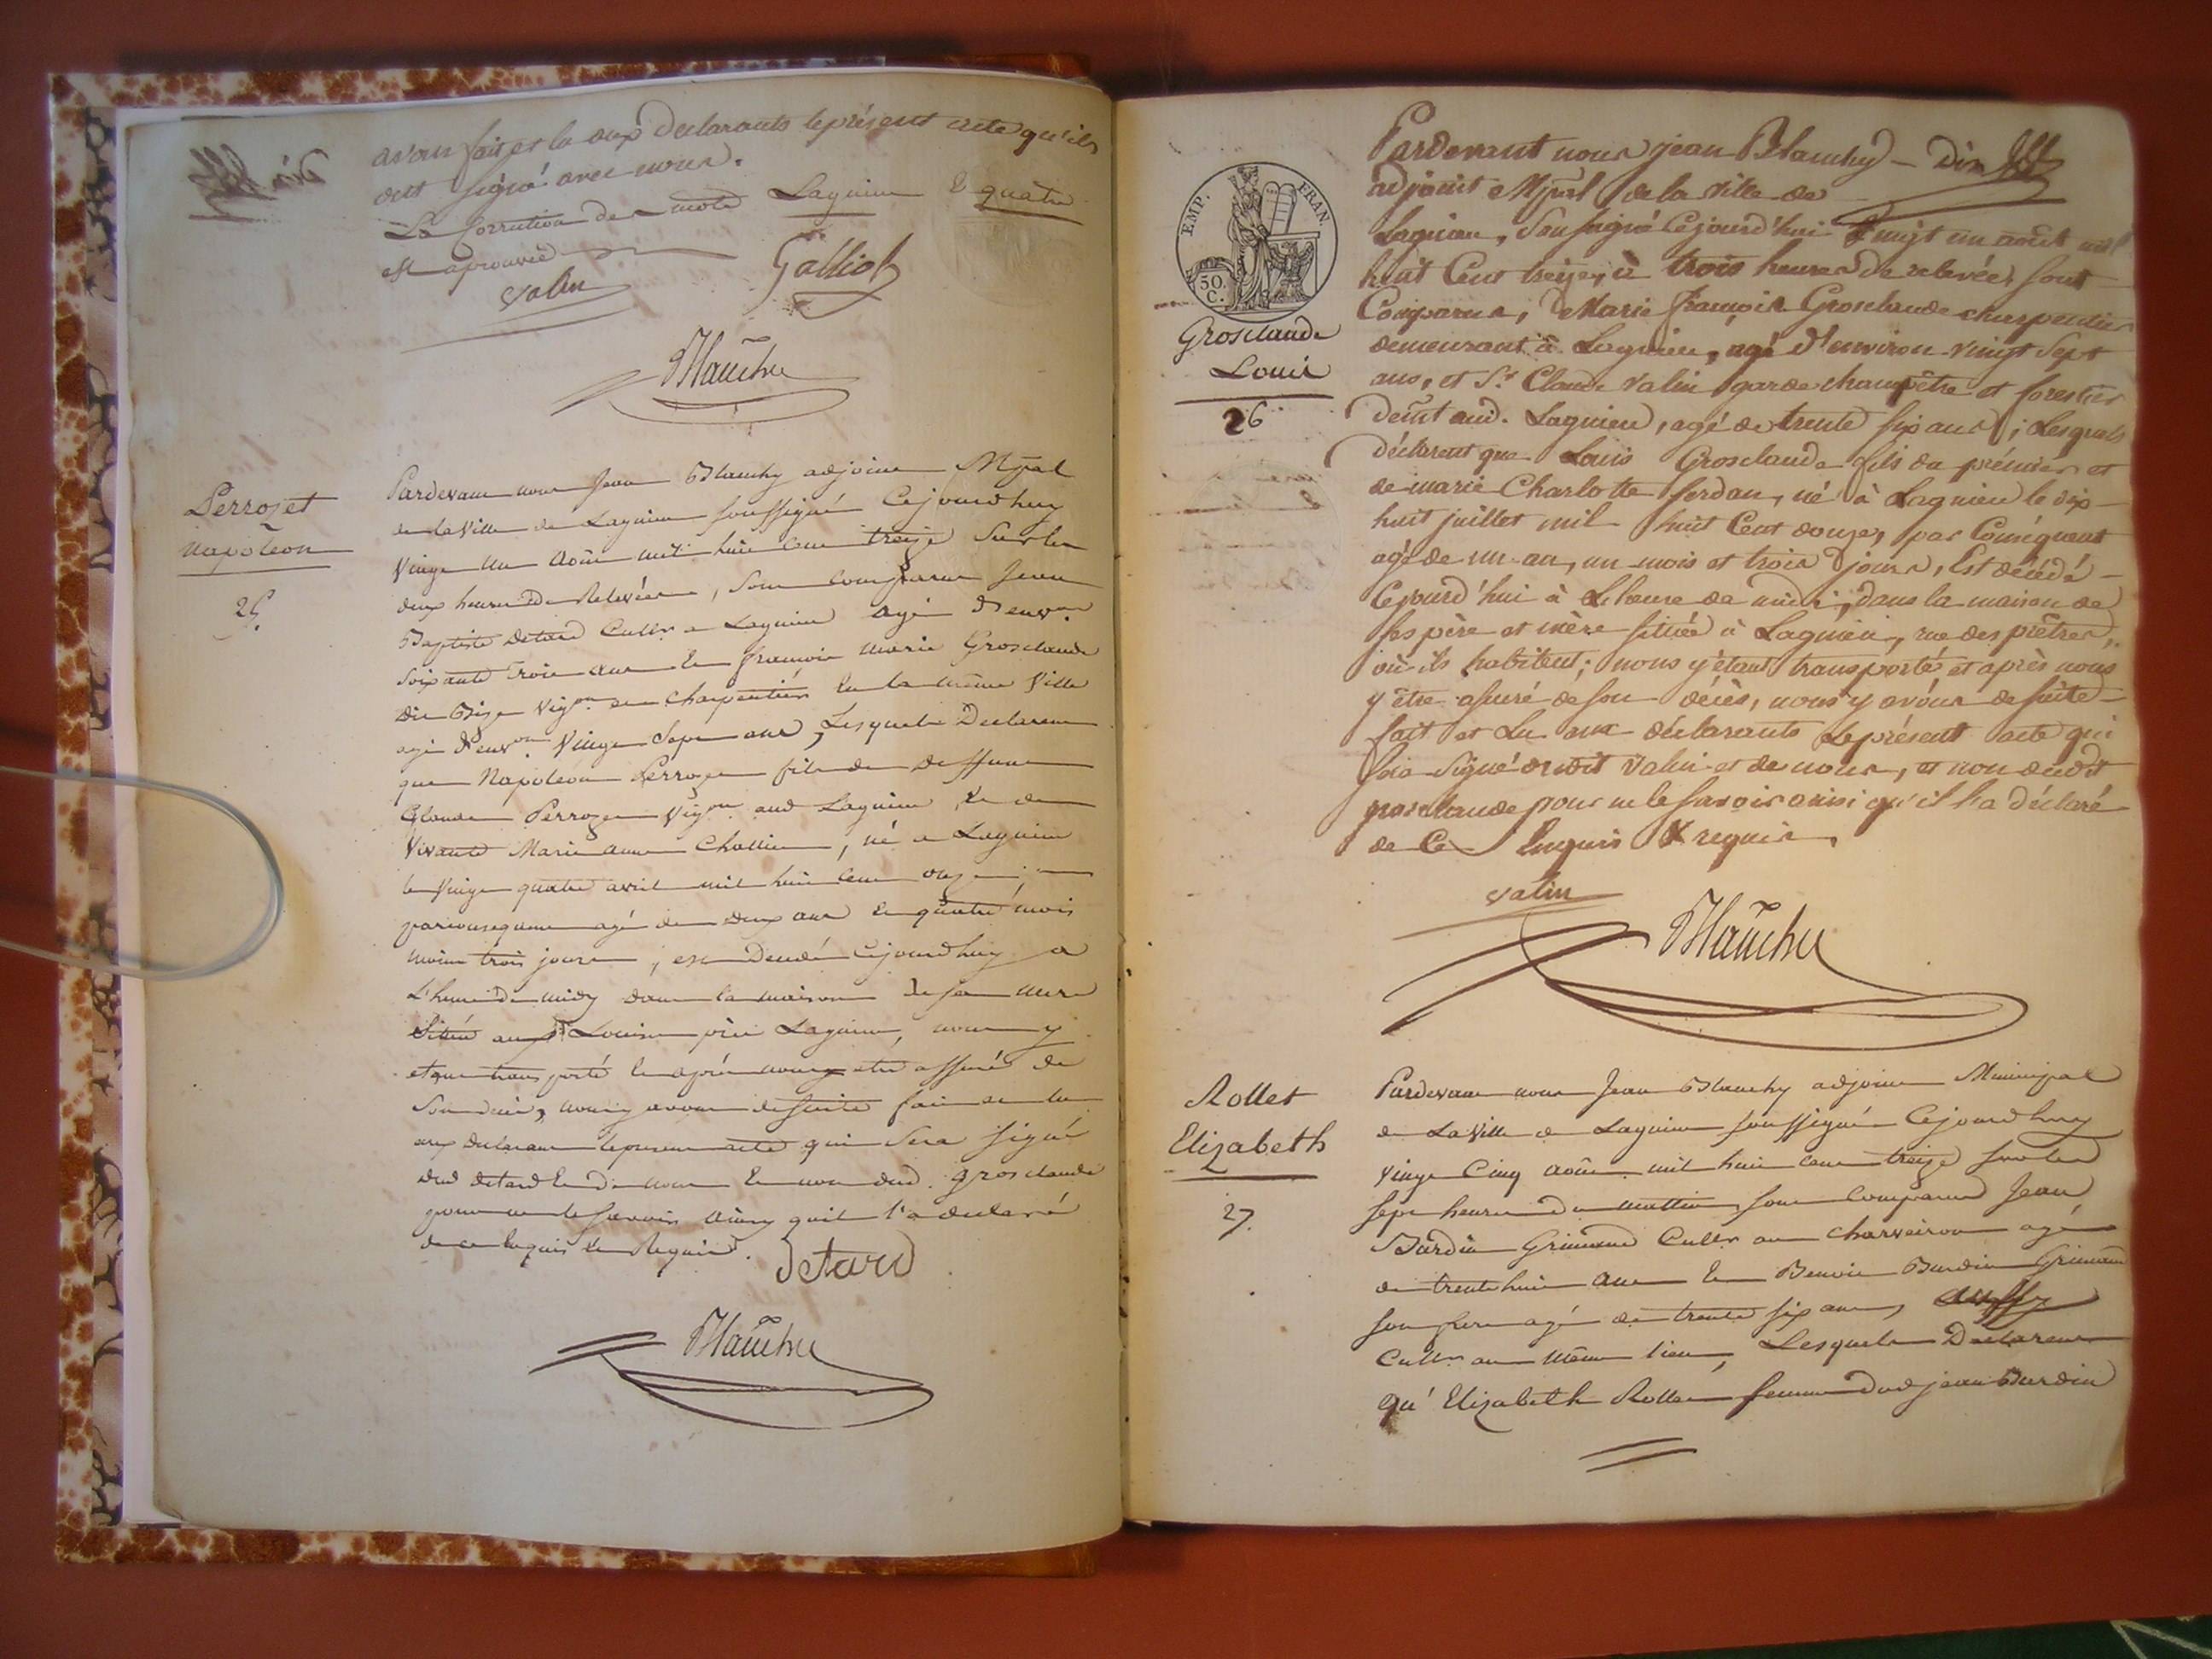 avons fait et lu aux déclarants le présent acte qu'ils
ont signé avec nous.
La Correction des mots Lagnieu & quatre
est aprouvée
Valin Galliot
Blanchy
Perrozet
Napoleon
25.
Pardevant nous Jean Blanchy adjoint Mpal
de la Ville de Lagnieu soussigné Cejourdhuy
Vingt un Août mil huit cent treize Sur les
deux heures de Relevée, sont comparus Jean
Baptiste Detard Cultr a Lagnieu agé d'envon
soixante trois ans et françois marie Grosclaude
dit Bize Vigon et charpentier en la même Ville
agé d'envon Vingt Sept ans, Lesquels Declarent
que Napoléon Perrozet fils de deffunt
Claude Perrozet Vigon aud Lagnieu et de
Vivante Marie anne Challier, né a Lagnieu
le Vingt quatre avril mil huit cent onze
parconsequent agé de deux ans et quatre mois
moins trois jours, est Decedé Cejourdhuy a
L'heure de midy dans la maison de sa mere
Située Lagnieu, nous y
etant transporté et après nous y etre assuré de
Son decès, nous y avons de suite fait et lu
aux declarants le present acte qui Sera signé
dud detard et de nous et non dud. Grosclaude
pour ne le savoir ainsy quil l'a declaré
de ce Enquis et Requis.
Detard
Blanchy
Pardevant nous jean Blanchy Dix
adjoint Mpal de la Ville de
Lagnieu, Soussigné Cejourd'hui Vingt un août mil
huit Cent treize, à trois heures de relevée, sont
EMP. FRAN.
50. C.
Comparus, Marie françois Grosclaude charpentier
Grosclaude
Louis
26
demeurant à Lagnieu, agé d'environ vingt Sept
ans, et Sr Claude Valin garde champêtre et forestier
demt aud. Lagnieu, agé de trente six ans; Lesquels
déclarent que Louis Grosclaude fils du prémier et
de marie Charlotte ferdan, né à Lagnieu le dix
huit juillet mil huit Cent douze, par Conséquent
agé de un an, un mois et trois jours, Est décédé
Cejourd'hui à L'heure de midi, dans la maison de
ses père et mère située à Lagnieu, rue des prêtres,
où ils habitent; nous y étant transporté et après nous
y être assuré de son décès, nous y avons de suite
fait et Lu aux déclarants Le présent acte qui
sera Signé dudit Valin et de nous, et non dudit
grosclaude pour ne le savoir ainsi qu'il l'a déclaré
de Ce Enquis & requis.
Valin
Blanchy
Rollet
Elizabeth
27.
Pardevant nous Jean Blanchy adjoint Municipal
de La Ville de Lagnieu soussigné Cejourdhuy
vingt Cinq Août mil huit cent treize sur les
sept heures du mattin sont comparus Jean
Bardin Grimand Cultr au Charveiron agé
de trente huit ans et Benoit Burdin Grimand
son frere agé de trente six ans,
Cultr au même lieu, Lesquels Declarent
qu' Elizabeth Rollet femme dud jean Burdin